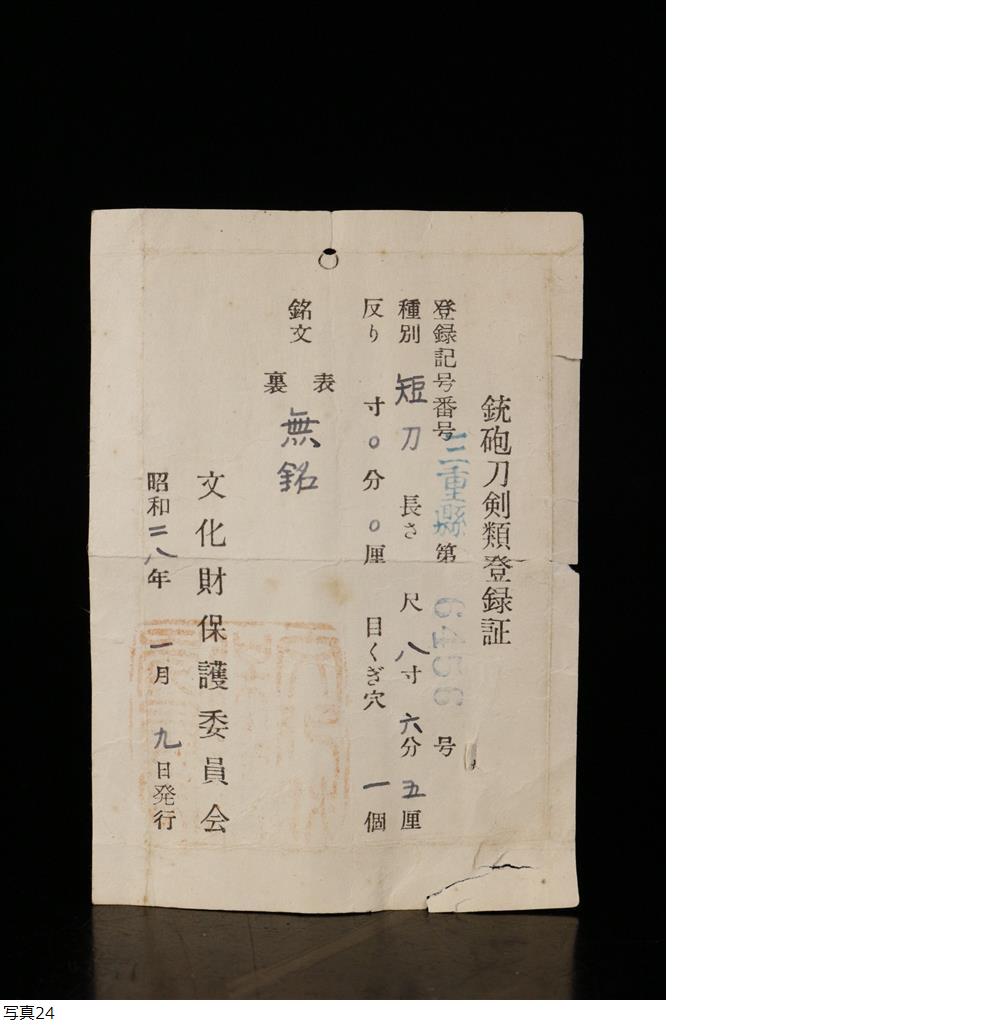 銃砲刀剣類登録証
登録記号番号 三重縣 第 6456 号
種別 短刀 長さ 尺 八寸 六分 五厘
反り 寸 〇分 〇厘 目くぎ穴 一個
銘文
表
無銘
裏
文化財保護委員会
昭和二八年 一月 九日発行
写真24